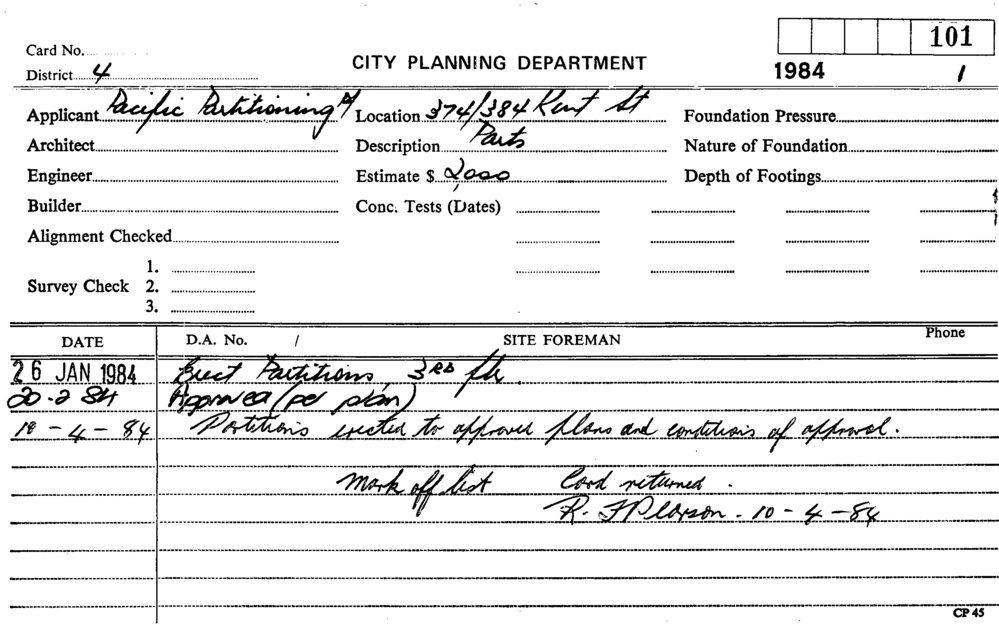 101
Card No.
CITY PLANNING DEPARTMENT
District 4
1984 1
Applicant Pacific Partitioning P/ Location 374/384 Kent St Foundation Pressure
Architect Description Parts Nature of Foundation
Engineer Estimate $ 2,000 Depth of Footings
Builder Conc. Tests (Dates)
Alignment Checked
1.
Survey Check 2.
3.
DATE D.A. No. / SITE FOREMAN Phone
26 JAN 1984 Erect Partitions, 3RD flr.
20.2 84 Approved (per plan)
10-4-84 Partitions erected to approved plans and conditions of approval.
Mark off list Card returned.
R. F Pearson. 10-4-84
CP 45